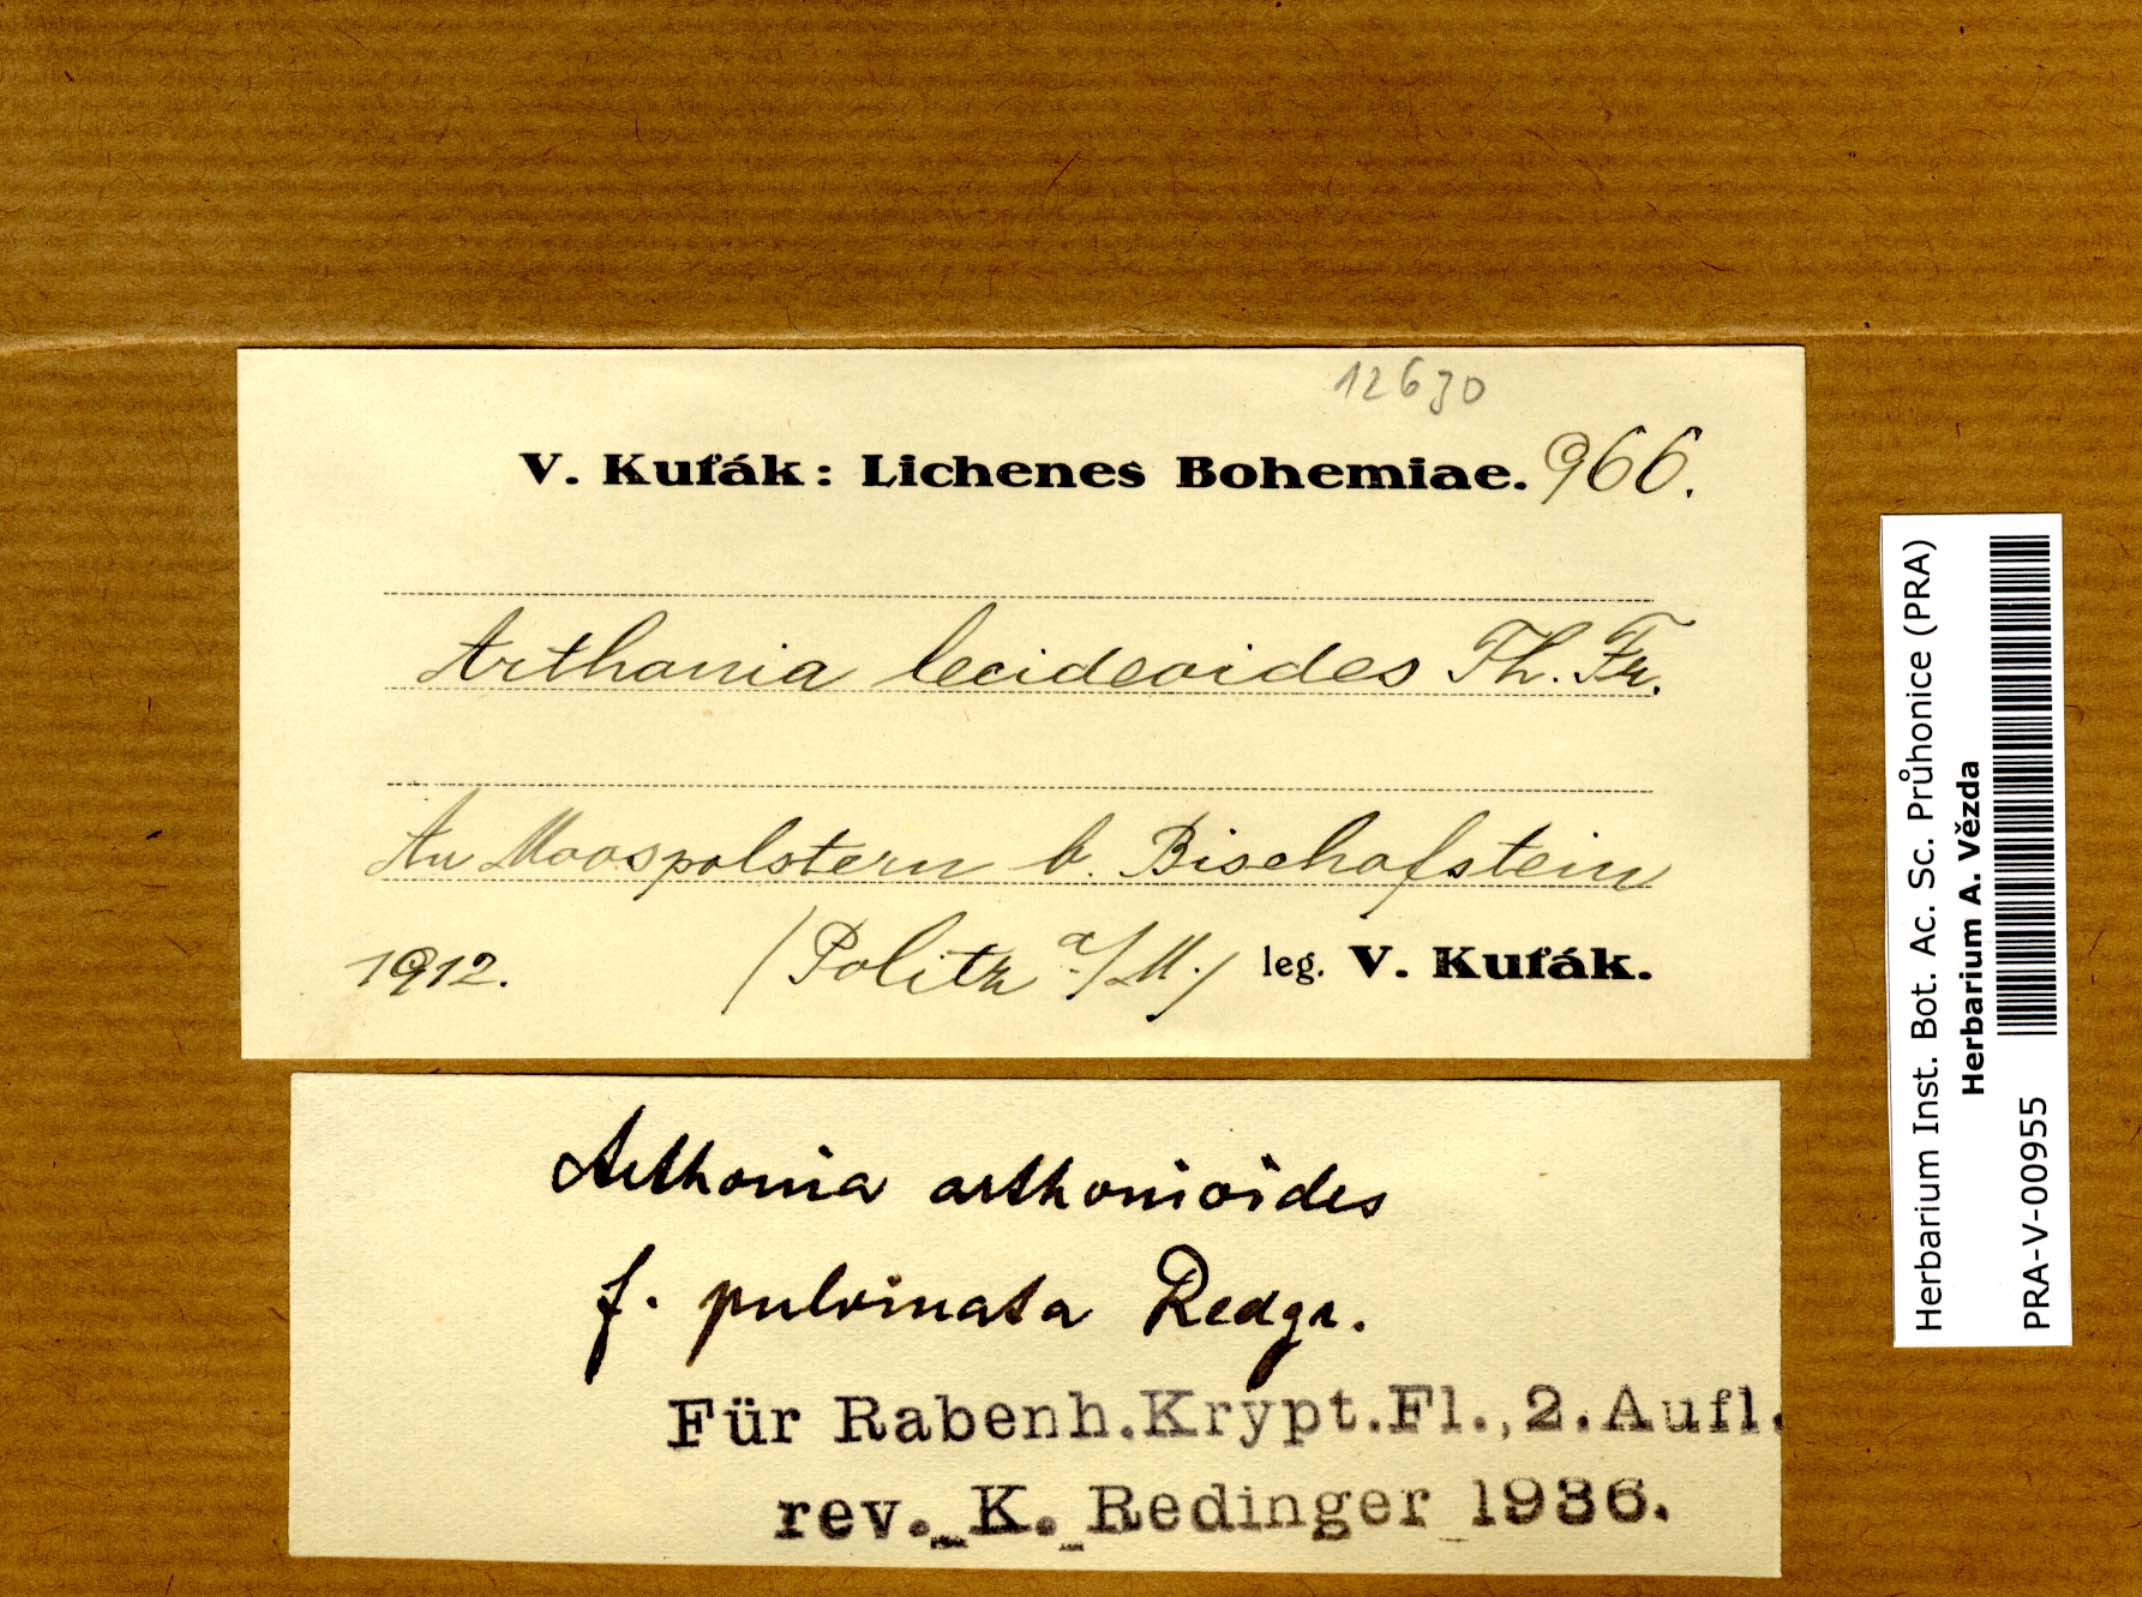 12630
V. Kuťák: Lichenes Bohemiae. 966.
Arthonia lecideoides Th. Fr.
An Moospolstern b. Bischofstein
1912. (Politz a/M.) leg. V. Kuťák.
Arthonia arthonioides
f. pulvinata Redgr.
Für Rabenh.Krypt.Fl.,2.Aufl.
rev. K. Redinger 1936.
Herbarium Inst. Bot. Ac. Sc. Průhonice (PRA)
Herbarium A. Vězda
PRA-V-00955